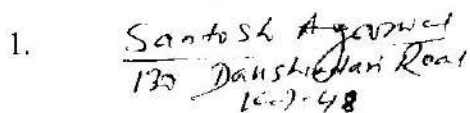 1. Santosh Agarwal
130 Danshindari Road
Kol-48